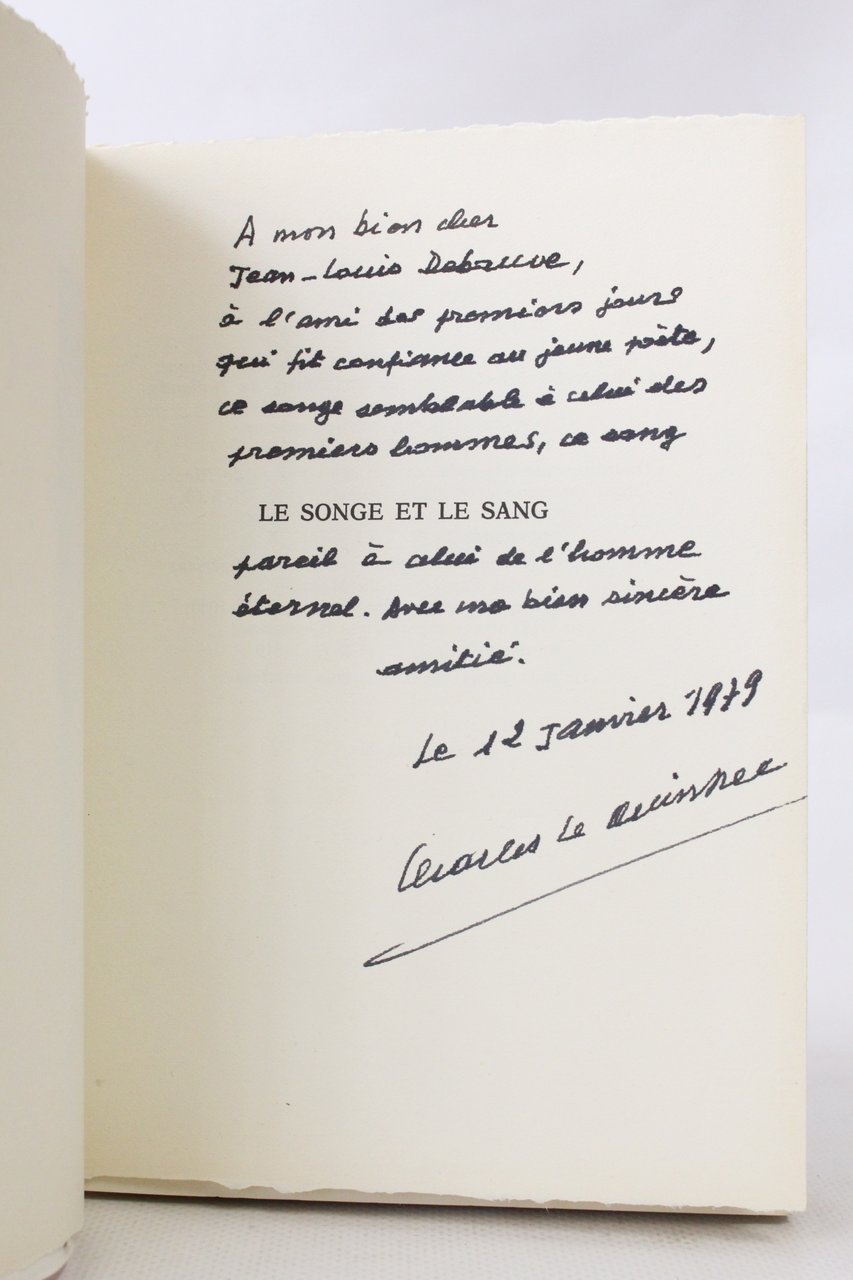 A mon bien cher
Jean-Louis Debauve,
à l'ami des premiers jours
qui fit confiance au jeune poète,
ce songe semblable à celui des
premiers hommes, ce sang
LE SONGE ET LE SANG
pareil à celui de l'homme
éternel. Avec ma bien sincère
amitié.
Le 12 Janvier 1979
Charles Le Quintrec